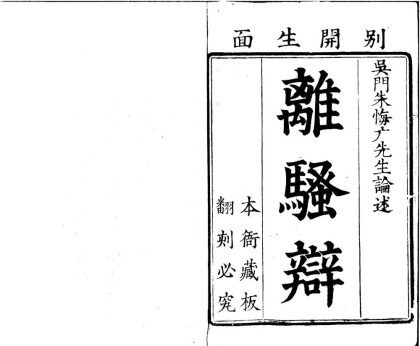 別開生面
吳門朱悔广先生論述
離騷辯
本衙藏板
翻刻必究